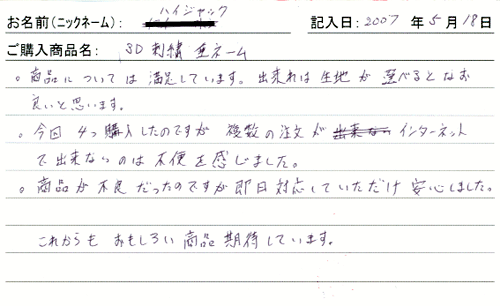 ハイジャック
お名前(ニックネーム): 記入日: 2007 年 5 月 18 日
ご購入商品名: 3D刺繍 亜ネーム
。商品については満足しています。出来れば生地が選べるとなお
良いと思います。
。今回 4つ購入したのですが 複数の注文が 出来ない インターネット
で出来ないのは不便を感じました。
。商品が不良だったのですが即日対応していただけ 安心しました。
これからも おもしろい商品期待しています。